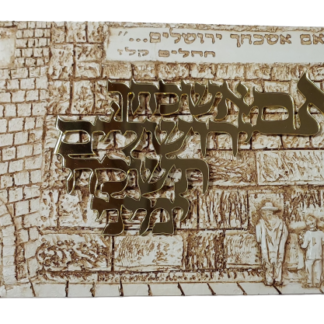 אם אשכחך ירושלים..."
תהלים קלז
אם אשכחך
ירושלים
תשכח
ימיני